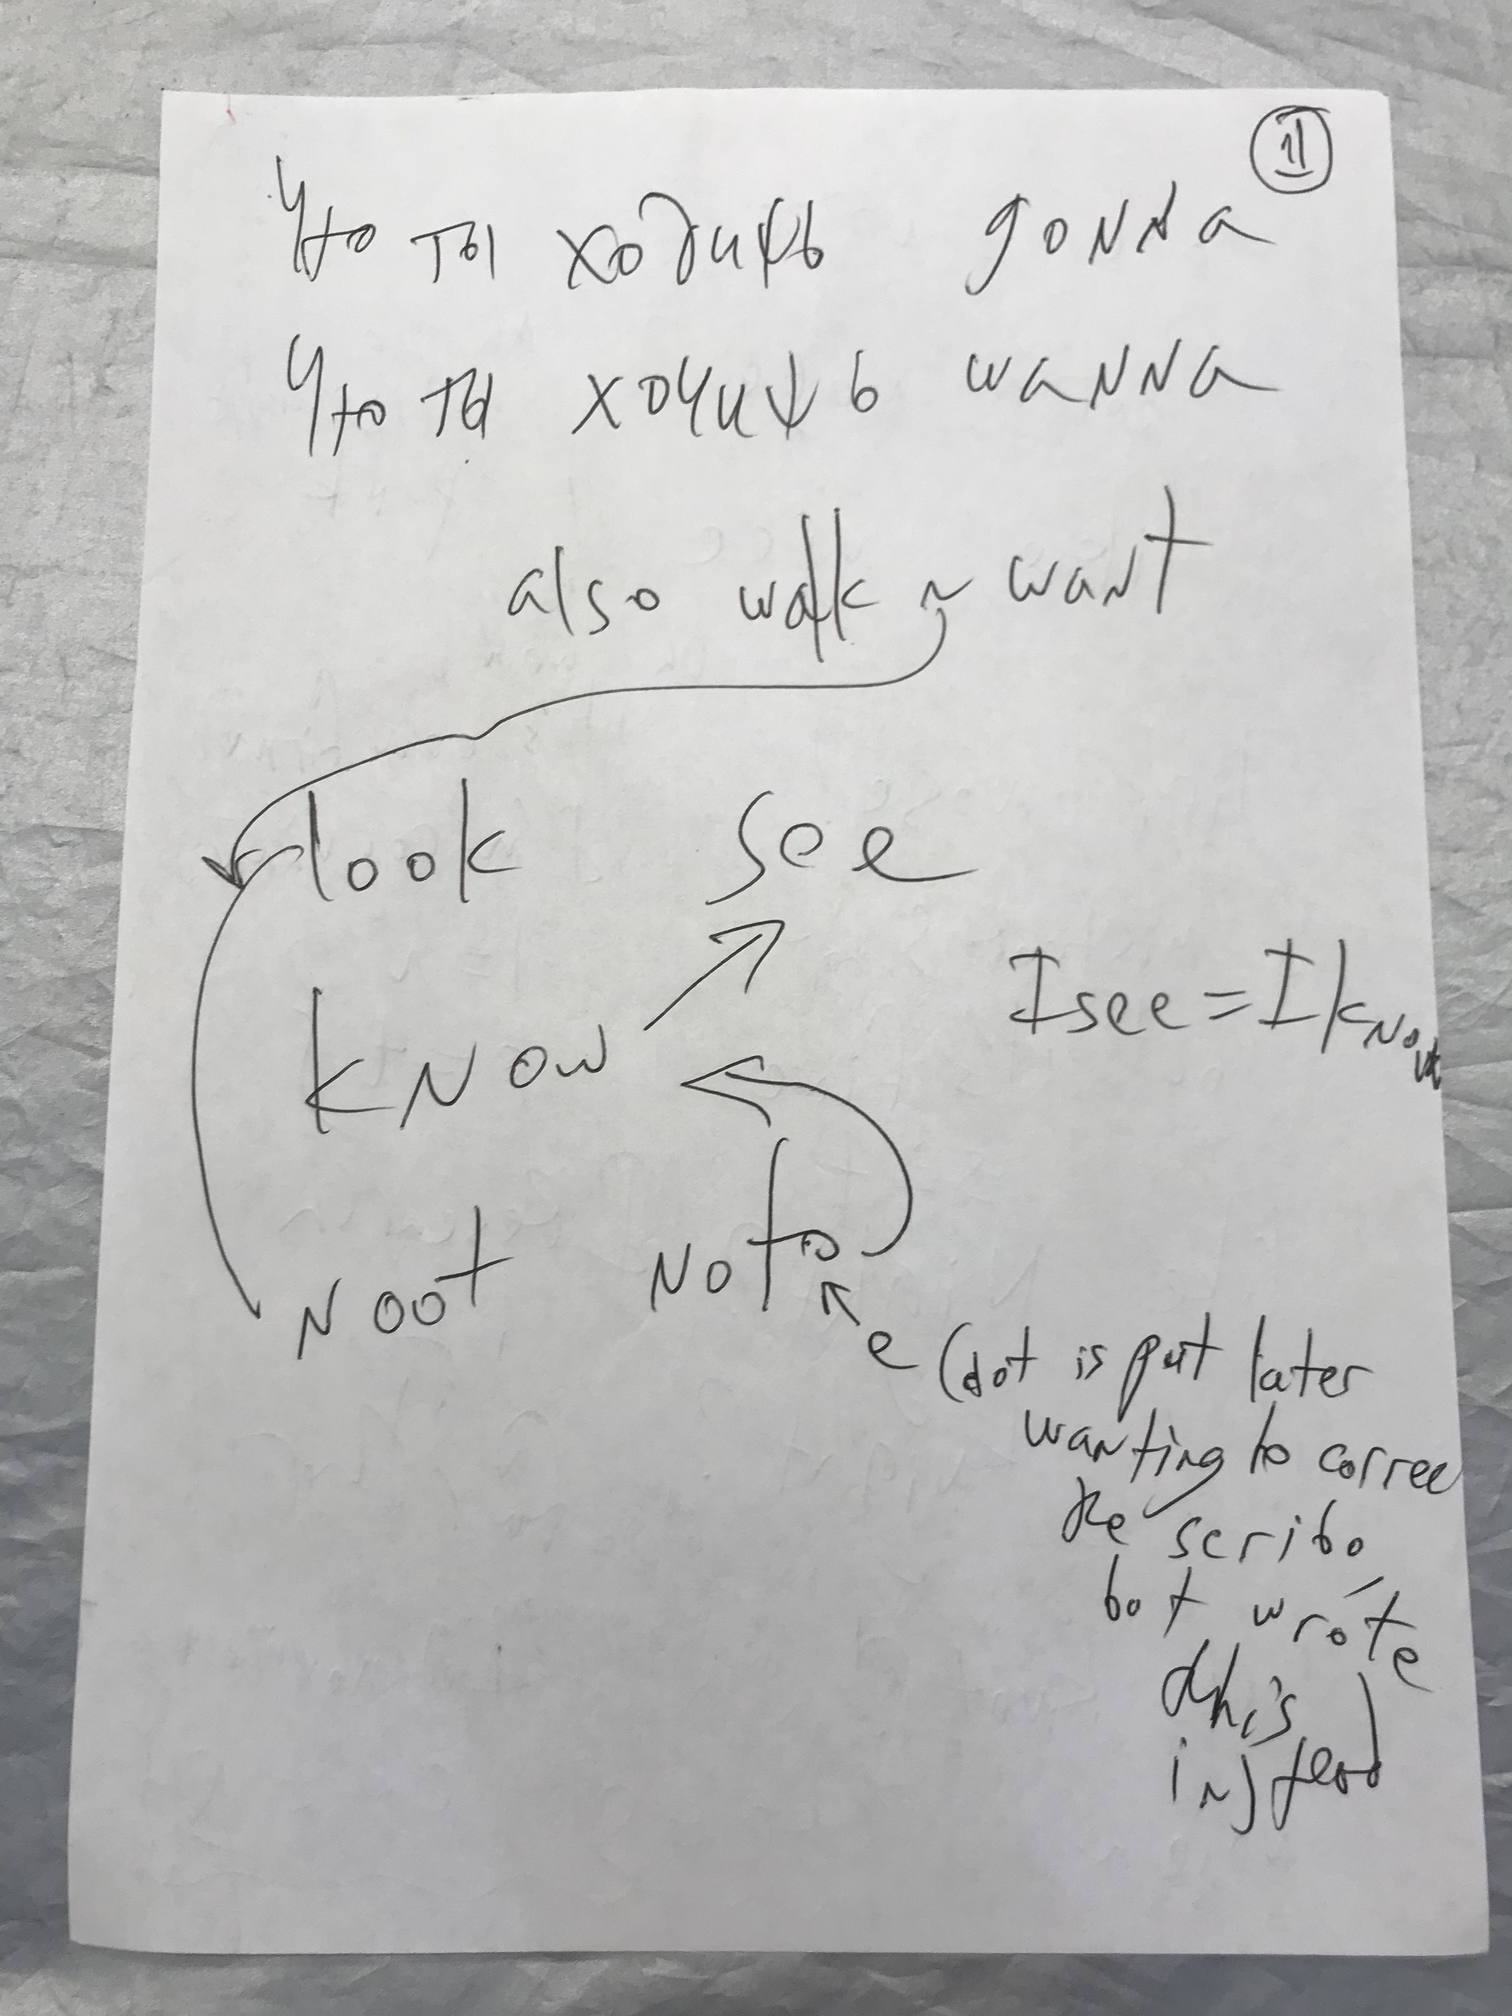 11
Что ты ходиψь gonna
Что ты хочиψь wanna
also walk ~ want
look see
I see = I know
know
noot noto
e (dot is put later
wanting to corree
the scribo,
bot wrote
this
instead)